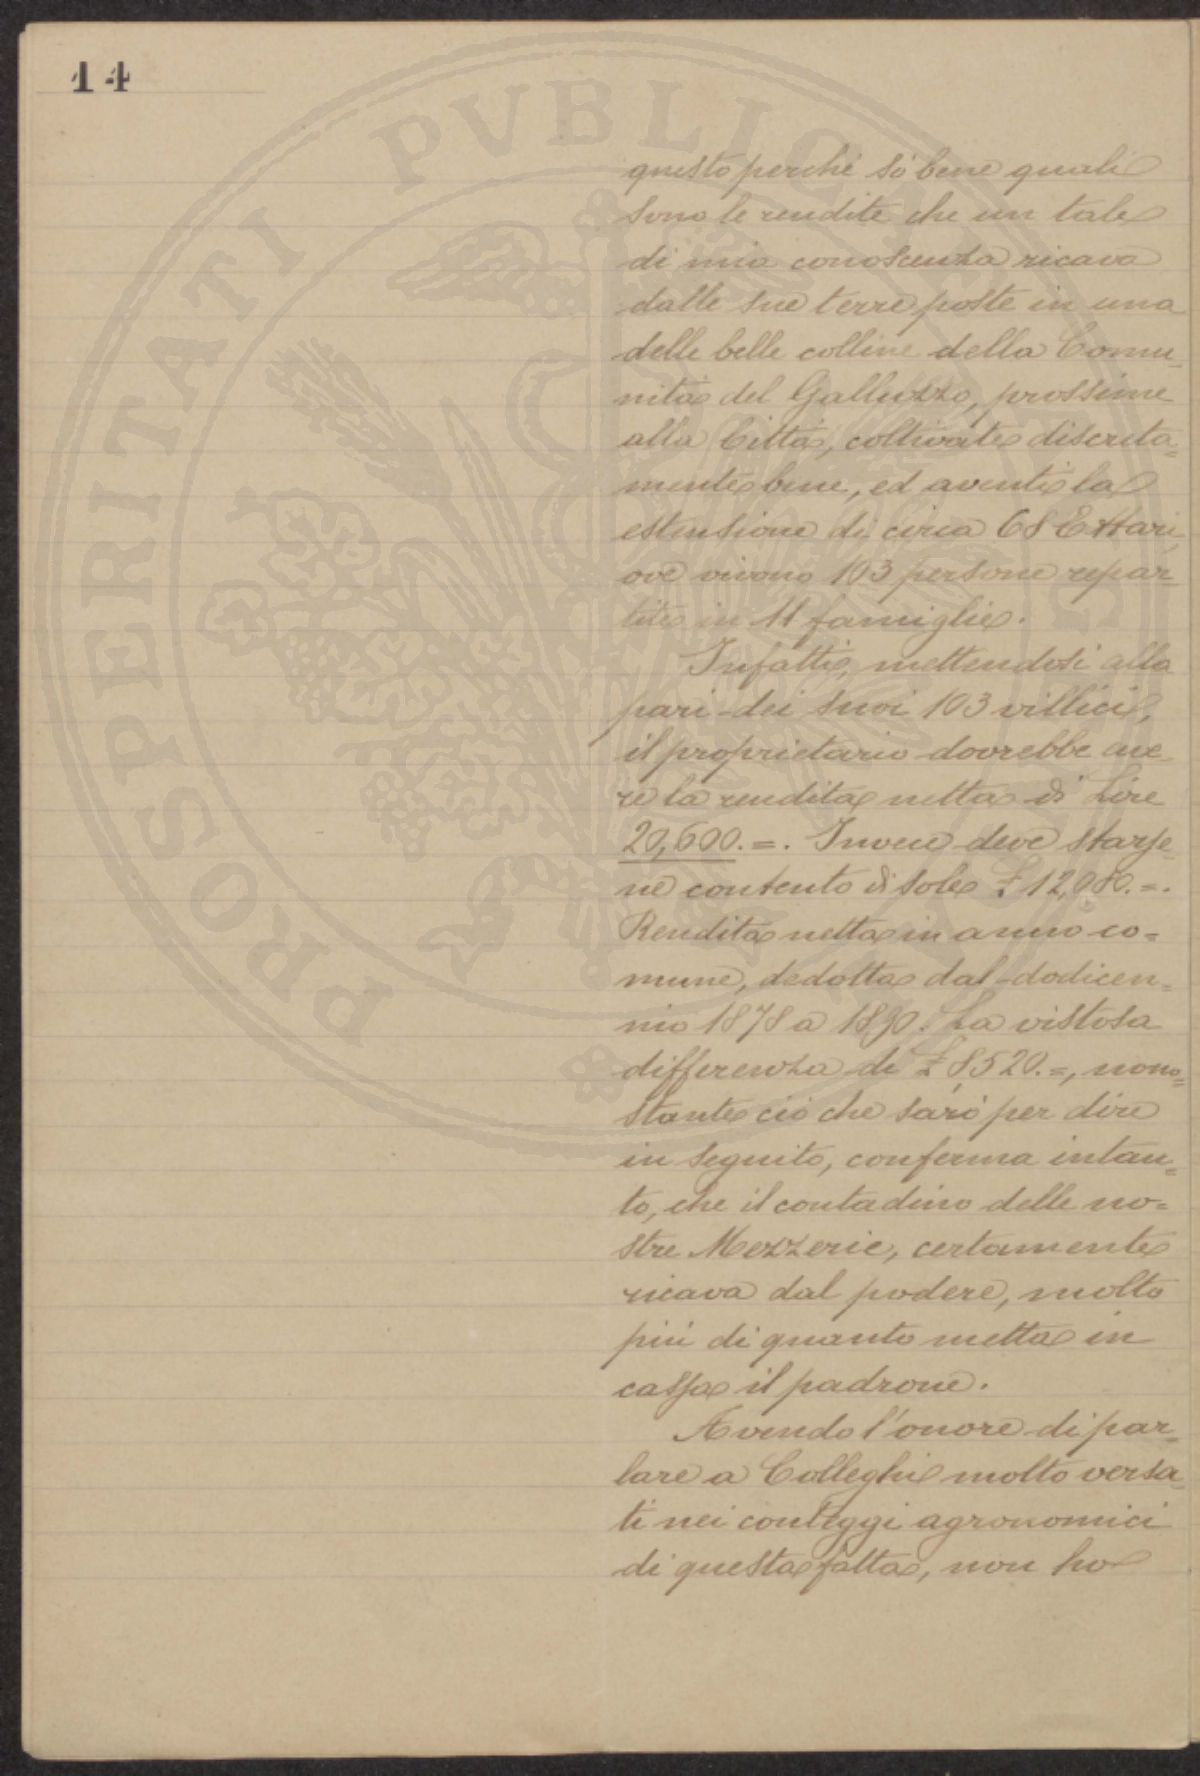 14
PROSPERITATI PVBLICAE
questo perché sò bene quali
sono le rendite che un tale
di mia conoscenza ricava
dalle sue terre poste in una
delle belle colline della Comu-
nità del Galluzzo, prossime
alla Città, coltivate discreta=
mente bene, ed aventi la
estensione di circa 68 Ettari
ove vivono 103 persone repar-
tite in 11 famiglie.
Infatti, mettendosi alla
pari dei suoi 103 villici,
il proprietario dovrebbe ave-
re la rendita netta di Lire
20,600.=. Invece deve starse-
ne contento di sole £ 12,080.=.
Rendita netta in anno co=
mune, dedotta dal dodicen=
nio 1878 a 1890. La vistosa
differenza di £ 8,520.=, nono=
stante ciò che sarò per dire
in seguito, conferma intan=
to, che il contadino delle no=
stre Mezzerie, certamente
ricava dal podere, molto
più di quanto metta in
cassa il padrone.
Avendo l'onore di par-
lare a Colleghi molto versa-
ti nei conteggi agronomici
di questa fatta, non ho